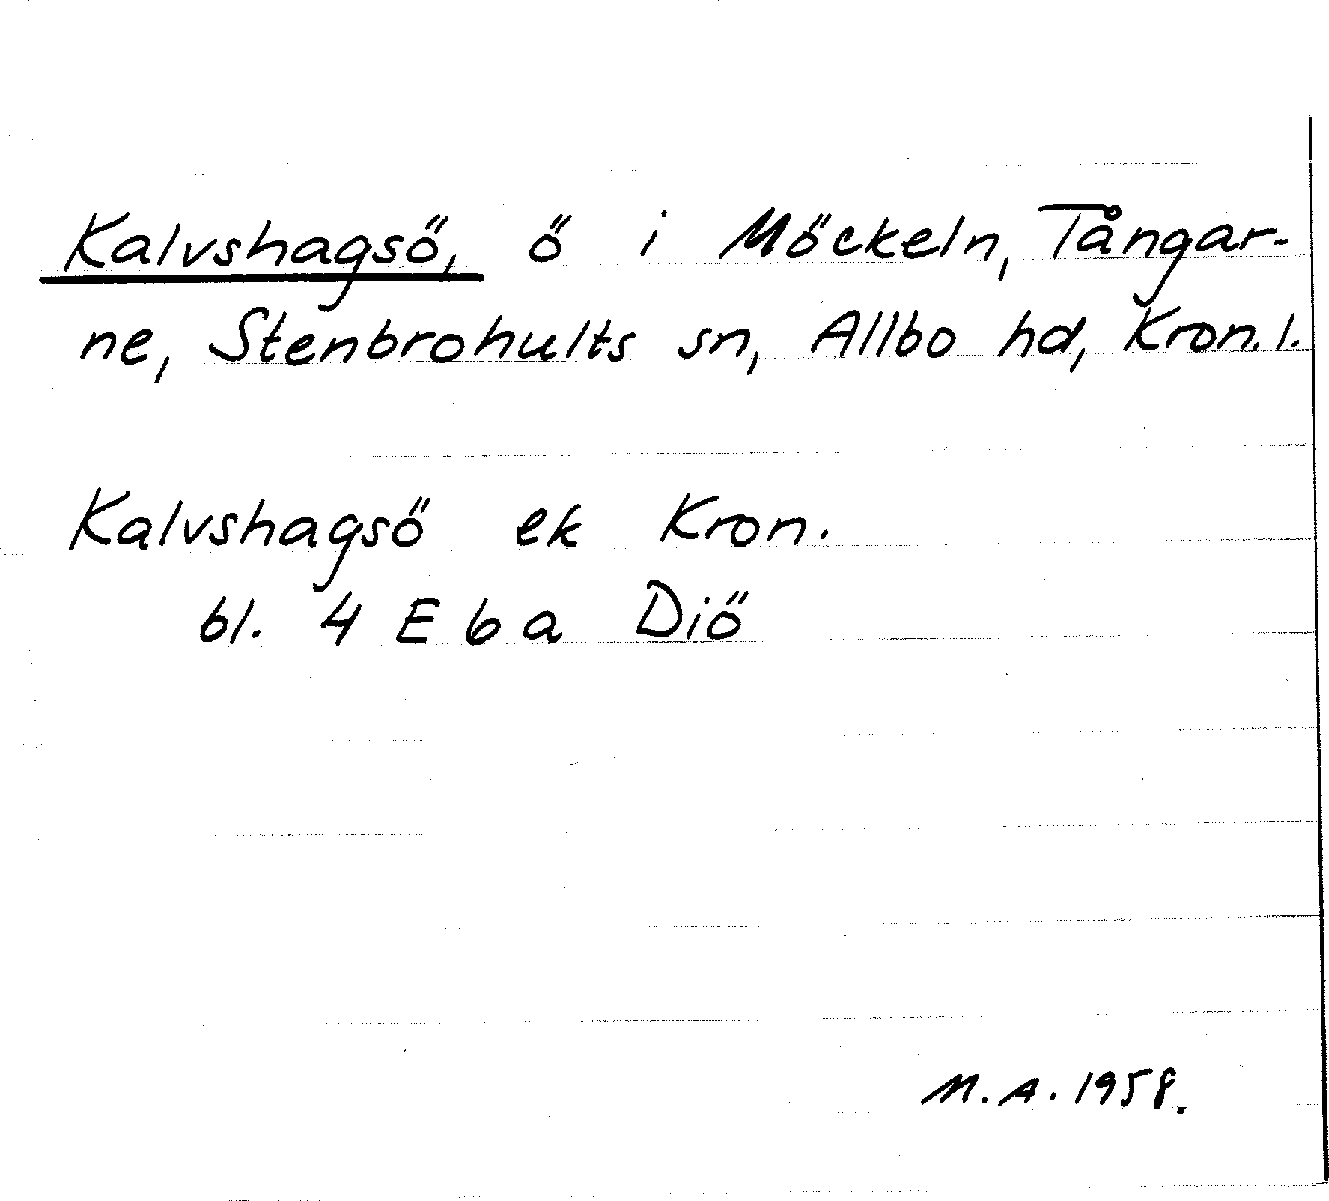 Kalvshagsö, ö i Möckeln, Tångar-
ne, Stenbrohults sn, Allbo hd, Kron. l.
Kalvshagsö ek Kron.
bl. 4 E 6 a Diö
M.A. 1958.